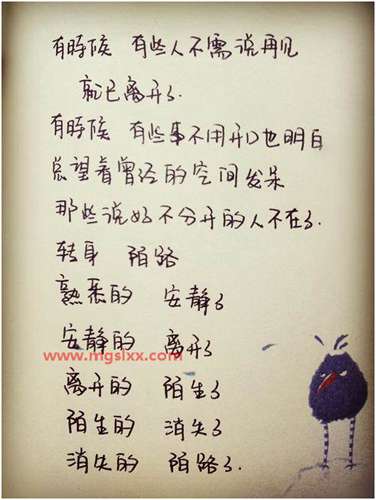 有時候 有些人不需说再见
就已离开了.
有時候 有些事不用开口也明白
总望着曾经的空间发呆
那些说好不分开的人不在了.
转身 陌路
熟悉的 安静了
安静的 离开了
www.mgsixx.com
离开的 陌生了
陌生的 消失了
消失的 陌路了.